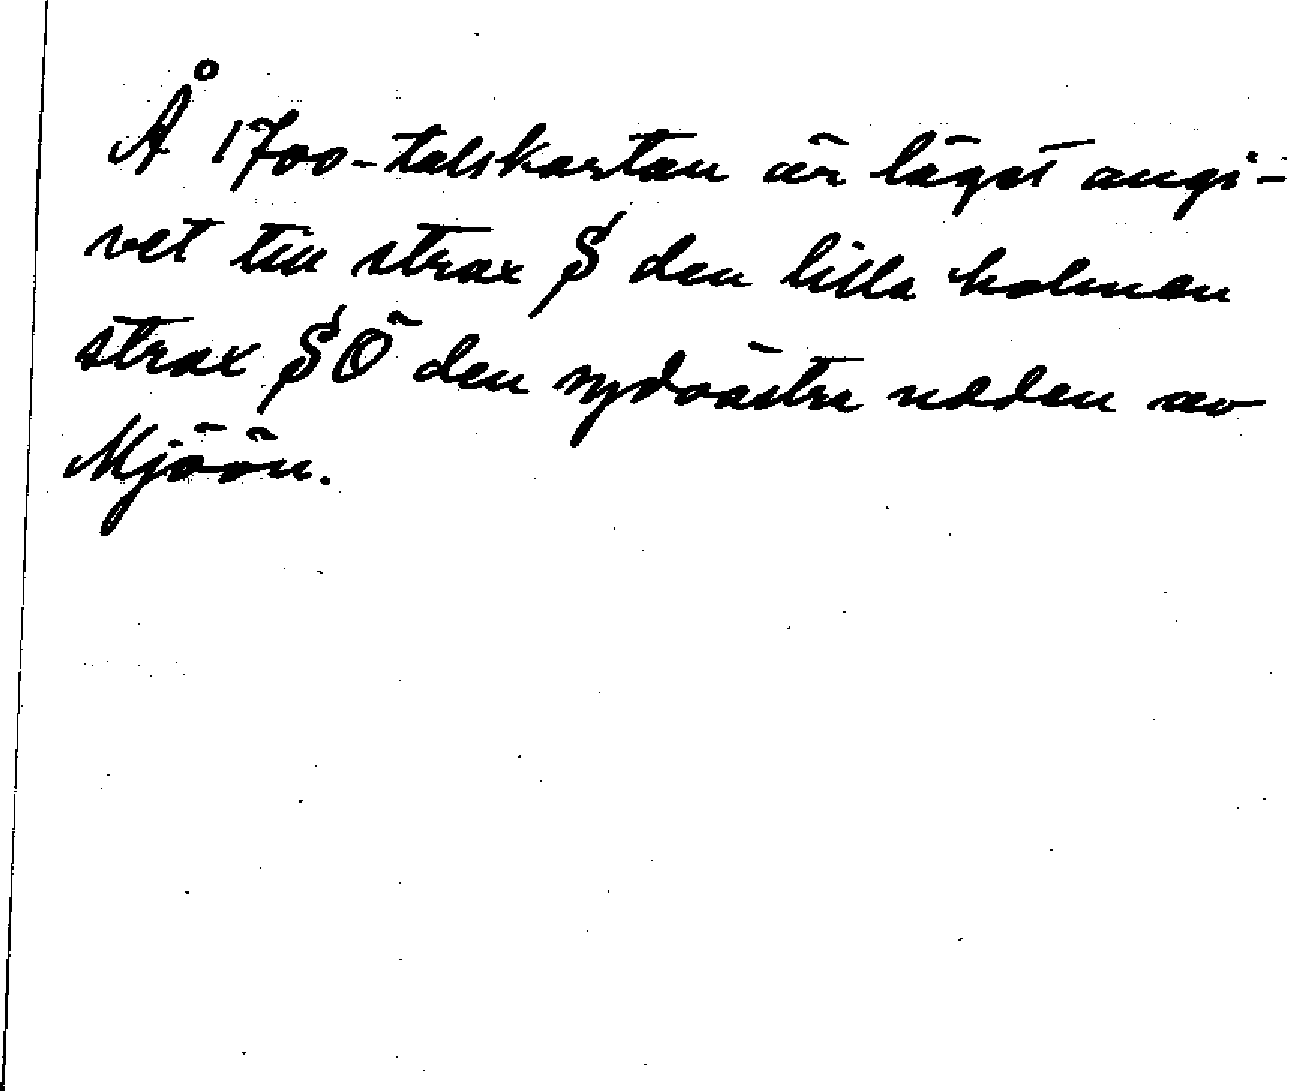 Å 1700-talskartan är läget angi-
vet till strax S den lilla holmen
strax SÖ den sydvästra udden av
Mjöön.